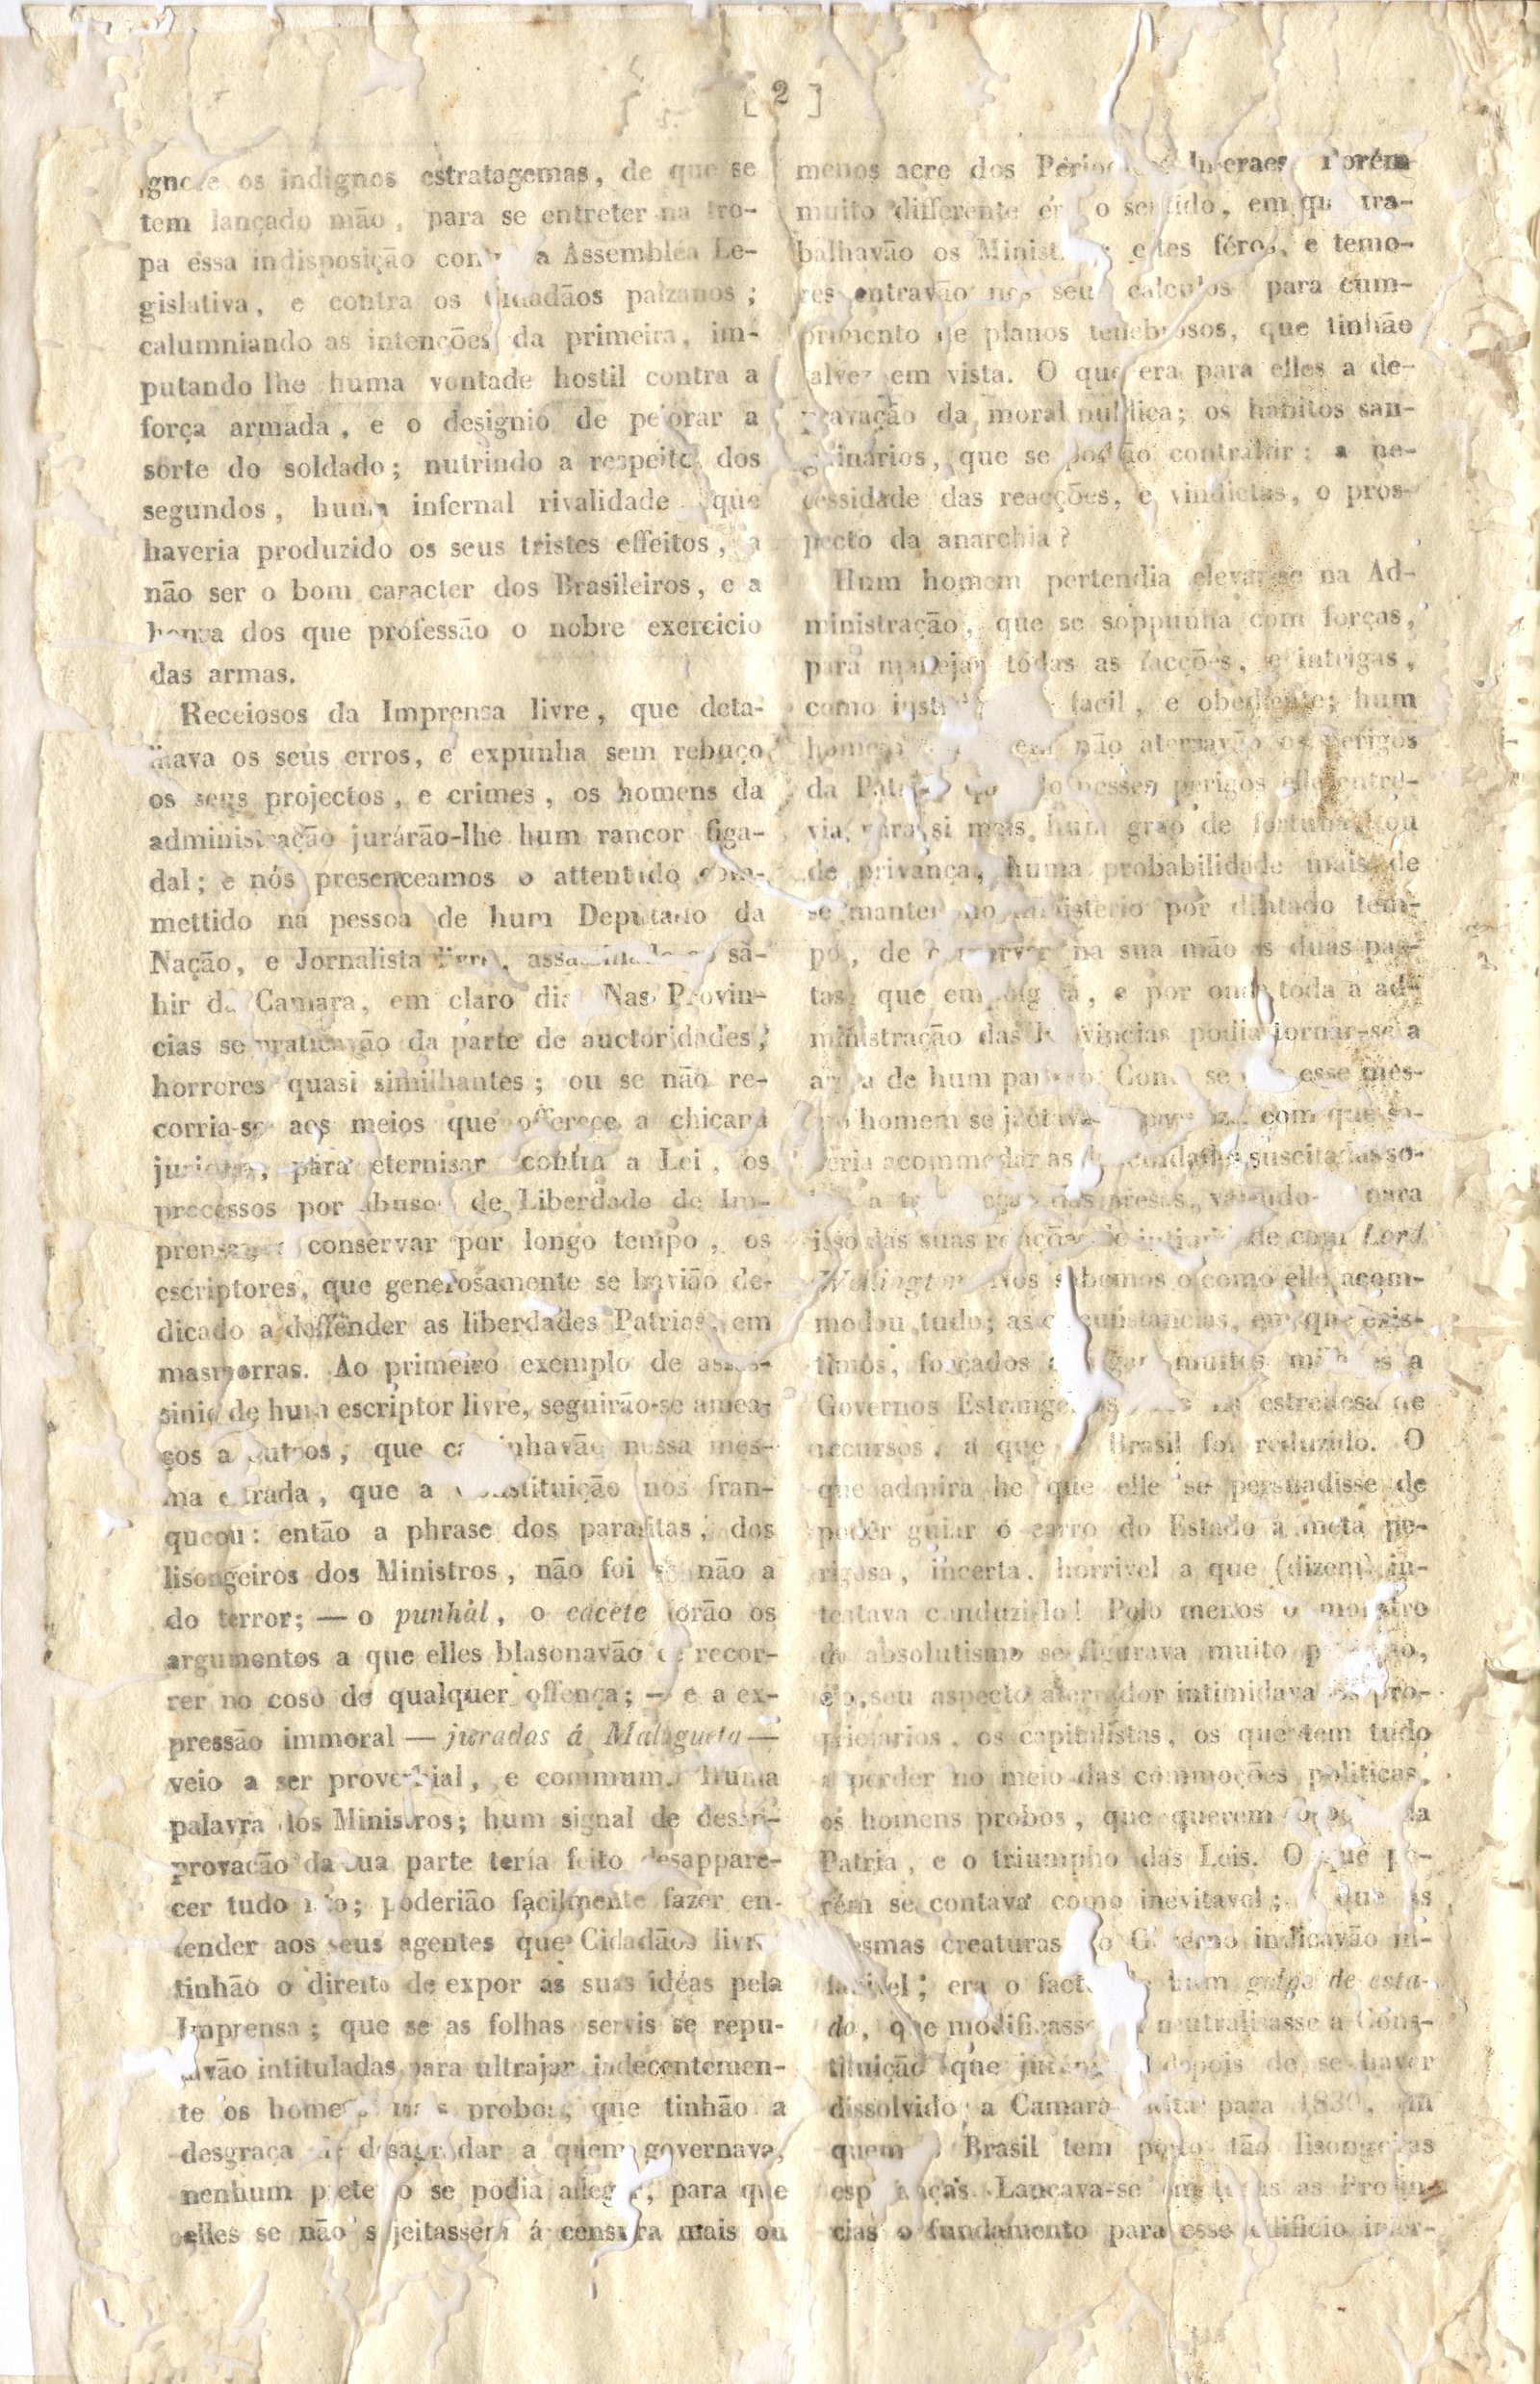 [ 2 ]
os indignos estratagemas, de que se
tem lançado mão, para se entreter na tro-
pa essa indisposição a Assembléa Le-
gislativa, e contra os Cidadãos paizanos;
calumniando as intenções da primeira, im-
putando lhe huma vontade hostil contra a
força armada, e o designio de peiorar a
sorte do soldado; nutrindo a respeito dos
segundos, huma infernal rivalidade que
haveria produzido os seus tristes effeitos, a
não ser o bom caracter dos Brasileiros, e a
honra dos que professão o nobre exercicio
das armas.
Receiosos da Imprensa livre, que deta-
lhava os seus erros, e expunha sem rebuço
os seus projectos, e crimes, os homens da
administração jurárão-lhe hum rancor figa-
dal; e nós presenceamos o attentado com-
mettido na pessoa de hum Deputado da
Nação, e Jornalista livre, assassinado ao sa-
hir da Camara, em claro dia Nas Provin-
cias se praticavão da parte de auctoridades,
horrores quasi similhantes; ou se não re-
corria-se aos meios que offerece a chicana
judiciosa, para eternisar contra a Lei, os
processos por abusos de Liberdade de Im-
prensa conservar por longo tempo, os
escriptores, que generosamente se havião de-
dicado a deffender as liberdades Patrias, em
masmorras. Ao primeiro exemplo de assas-
sinio de hum escriptor livre, seguirão-se amea-
ços a outros, que caminhavão nessa mes-
ma estrada, que a Constituição nos fran-
queou: então a phrase dos parasitas, dos
lisongeiros dos Ministros, não foi se não a
do terror; — o punhál, o cacête forão os
argumentos a que elles blasonavão de recor-
rer no coso de qualquer offença; — e a ex-
pressão immoral — juradas á Malagueta —
veio a ser proverbial, e commum. Huma
palavra dos Ministros; hum signal de desap-
provação da sua parte tería feito desappare-
cer tudo isto; poderião facilmente fazer en-
tender aos seus agentes que Cidadãos livres
tinhão o direito de expor as suas idéas pela
Imprensa; que se as folhas servis se repu-
tavão intituladas para ultrajar indecentemen-
te os homens mais probos, que tinhão a
desgraça de desagradar a quem governava,
nenhum pretexto se podia allegar, para que
elles se não sujeitassem á censura mais ou
menos acre dos Periodicos liberaes Porém
muito differente era o sentido, em que tra-
balhavão os Ministros; estes féros, e temo-
res entravão nos seus calculos para cum-
primento de planos tenebrosos, que tinhão
talvez em vista. O que era para elles a de-
pravação da moral publica; os habitos san-
guinários, que se podião contrahir; a ne-
cessidade das reacções, e vindictas, o pros-
pecto da anarchia?
Hum homem pertendia elevar-se na Ad-
ministração, que se soppunha com forças,
para manejar todas as facções, e intrigas,
como facil, e obediente; hum
homem não aterravão os perigos
da Patria nesses perigos elle entre-
via, para si mais hum grão de fortuna, ou
de privança, huma probabilidade mais de
se manter no ministerio por dilatado tem-
po, de conservar na sua mão as duas pas-
tas que e por onde toda a ad-
ministração das Provincias podia tornar-se a
de hum esse mes-
mo homem se jactava com que sa-
beria acommodar as suscitadas so-
presas, valendo- para
isso das suas relações de com Lord
Wellington Nós sabemos o como elle acom-
modou tudo; as circunstancias, em que exis-
timos, forçados a muitos a
Governos Estrangeiros, estreitesa de
recursos, a que o Brasil foi reduzido. O
que admira he que elle se persuadisse de
poder guiar o carro do Estado á meta pe-
rigosa, incerta, horrivel a que (dizem) in-
tentava conduzi-lo! Pelo menos o monstro
do absolutismo se figurava muito
e o seu aspecto aterrador intimidava os pro-
prietarios, os capitalistas, os que tem tudo
a perder no meio das commoções politicas,
os homens probos, que querem
Patria, e o triumpho das Leis. O que po-
rém se contava como inevitavel; que as
mesmas creaturas do Governo indicavão in-
fallivel; era o facto de hum golpe de esta-
do, que modificasse neutralisasse a Cons-
tituição que depois de se haver
dissolvido a Camara para 1830, em
quem o Brasil tem posto tão lisongeiras
esperanças. Lançava-se em todas as Provin-
cias o fundamento para esse edificio infer-